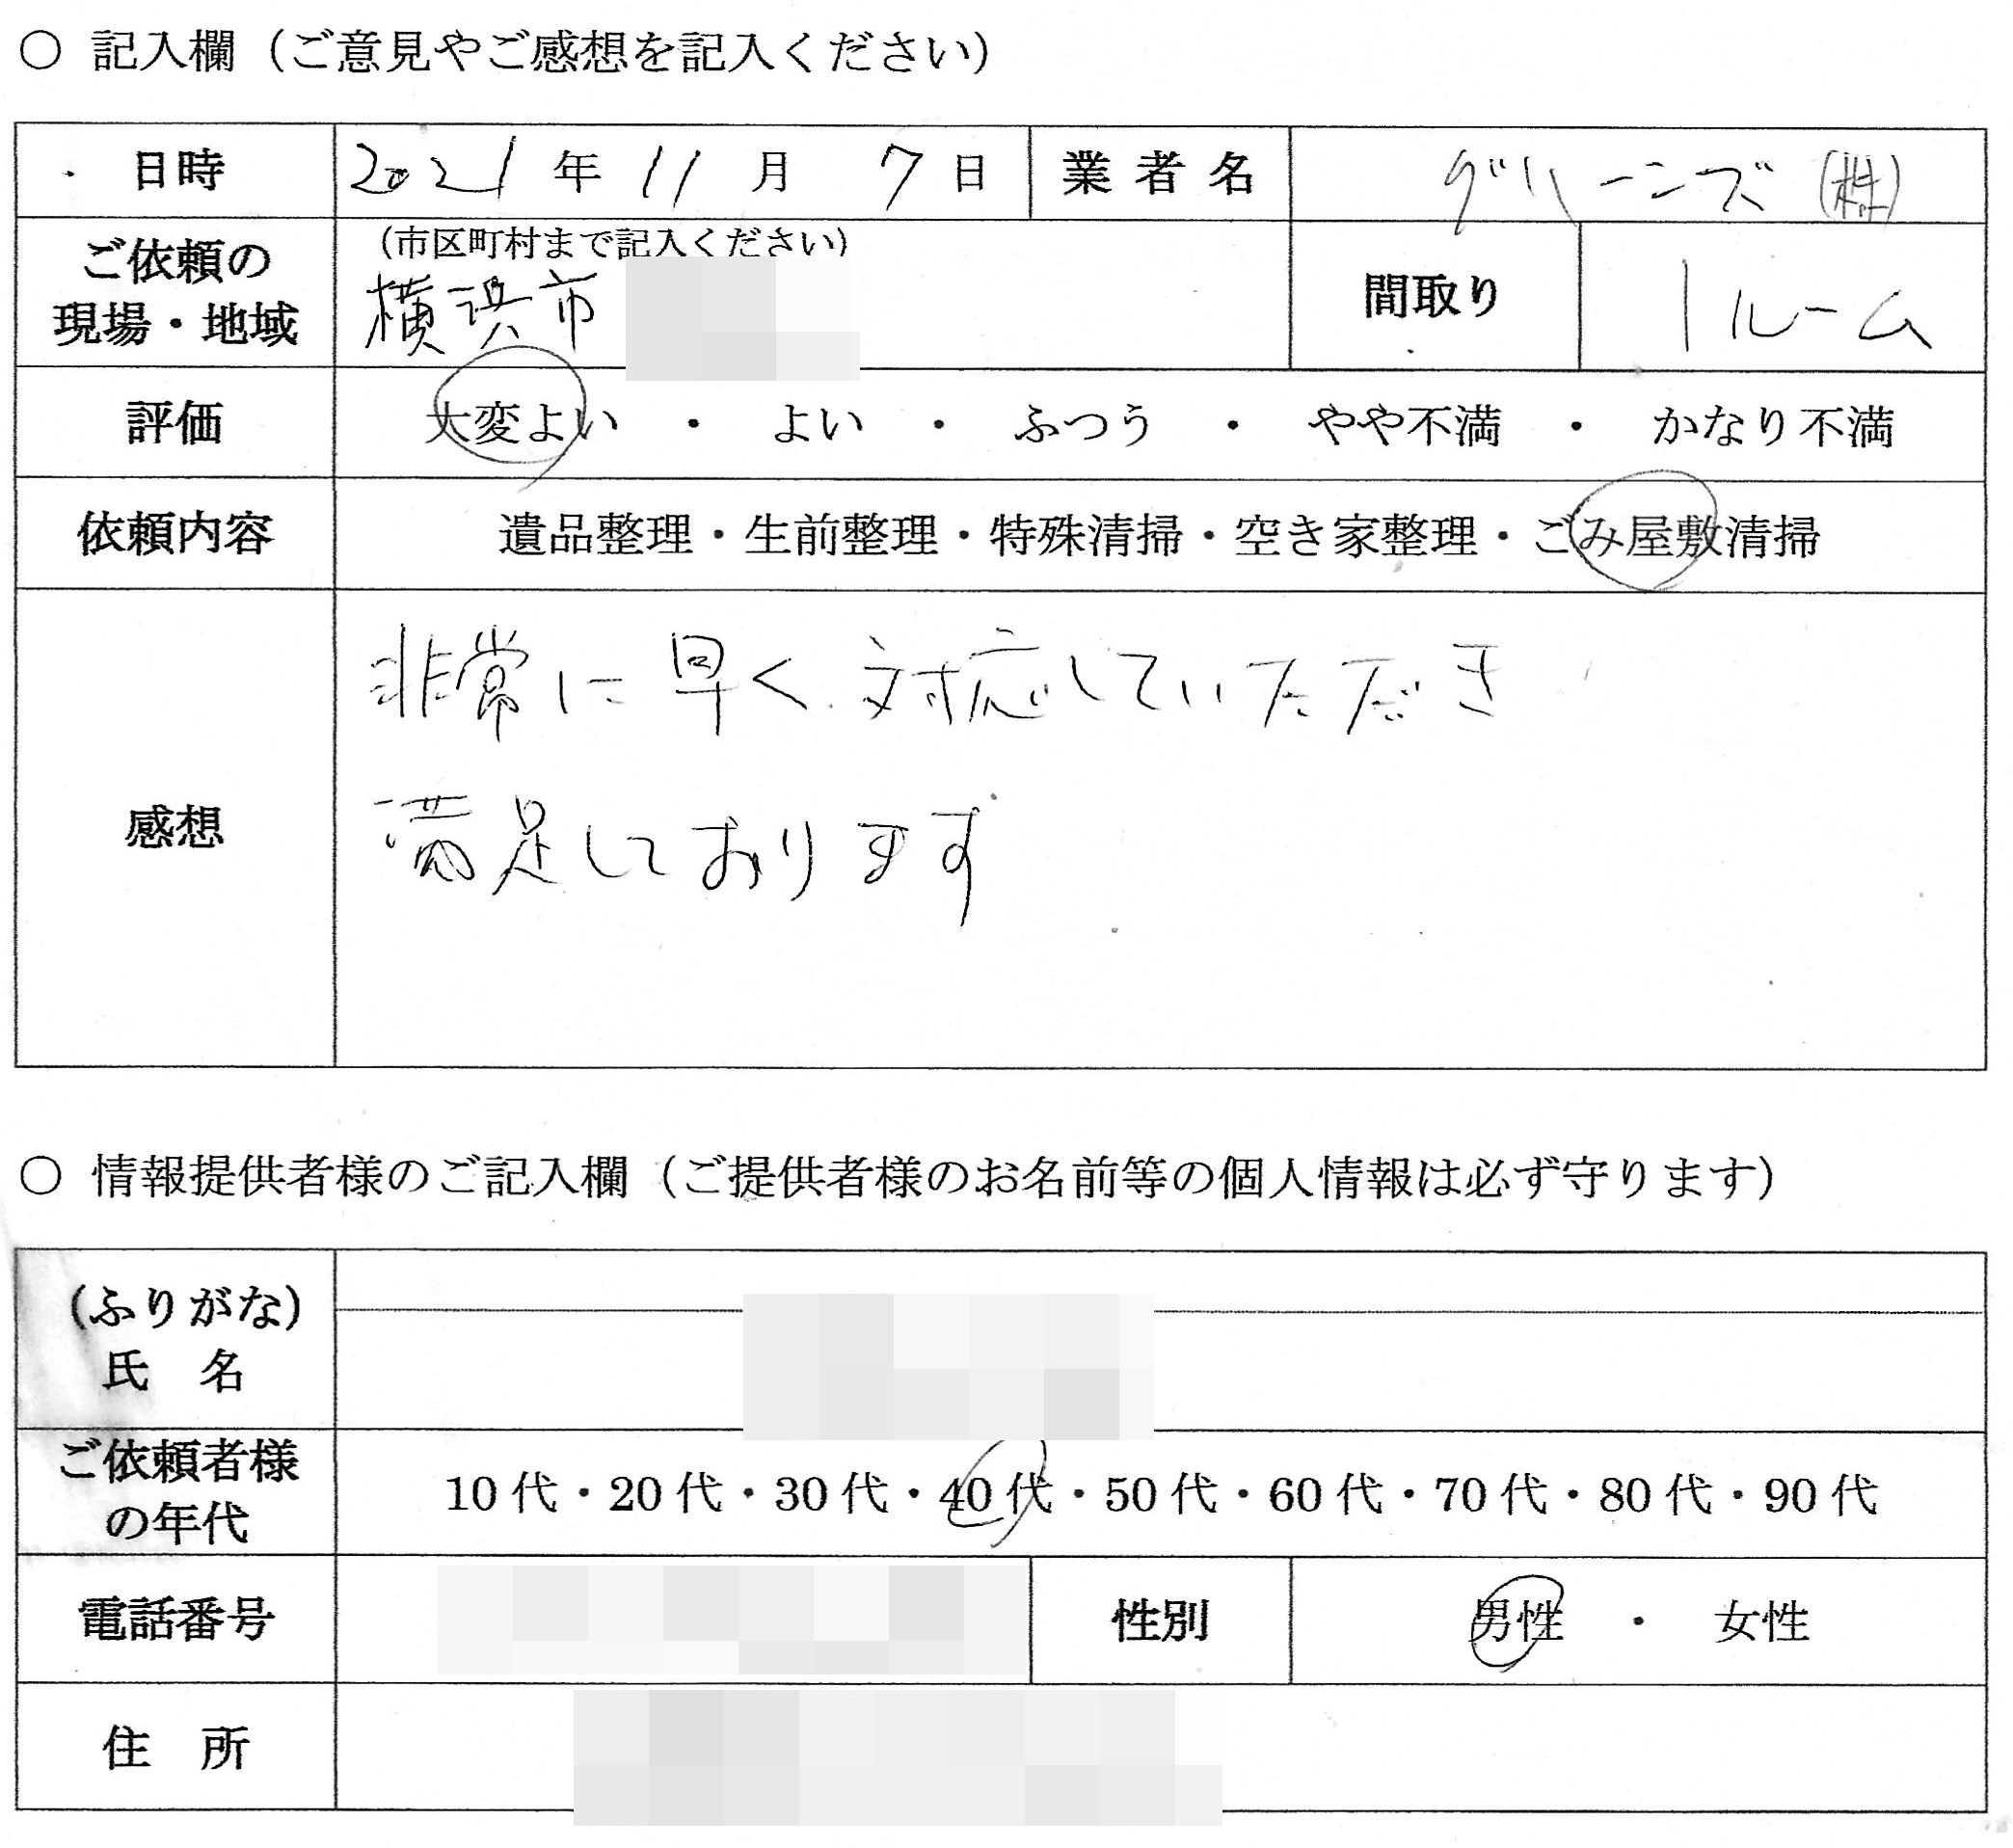 ○ 記入欄（ご意見やご感想を記入ください）
日時 2021年 11月 7日 業者名 グリーンズ（株）
ご依頼の現場・地域 （市区町村まで記入ください） 横浜市 間取り 1ルーム
評価 大変よい ・ よい ・ ふつう ・ やや不満 ・ かなり不満
依頼内容 遺品整理・生前整理・特殊清掃・空き家整理・ごみ屋敷清掃
感想 非常に早く対応していただき
満足しております
○ 情報提供者様のご記入欄（ご提供者様のお名前等の個人情報は必ず守ります）
（ふりがな）
氏 名
ご依頼者様の年代 10代・20代・30代・40代・50代・60代・70代・80代・90代
電話番号 性別 男性 ・ 女性
住 所